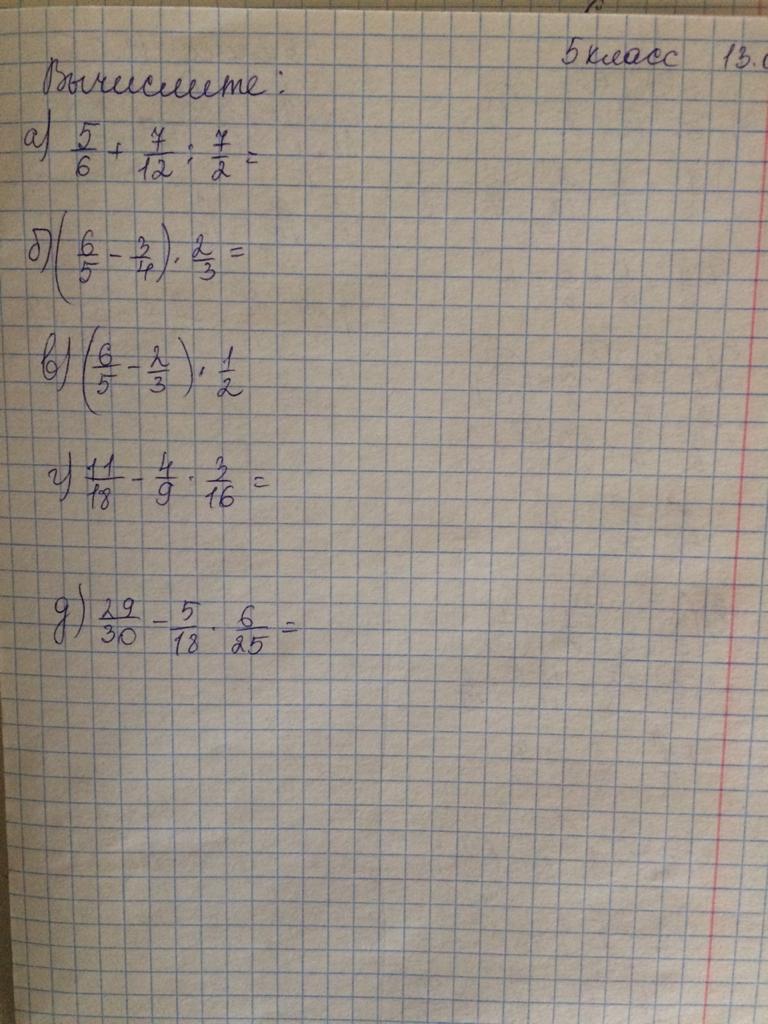 5 класс 13.0
Вычислите:
а) 5/6 + 7/12 : 7/2 =
б) (6/5 - 3/4) · 2/3 =
в) (6/5 - 2/3) · 1/2
г) 11/18 - 4/9 · 3/16 =
д) 29/30 - 5/18 · 6/25 =